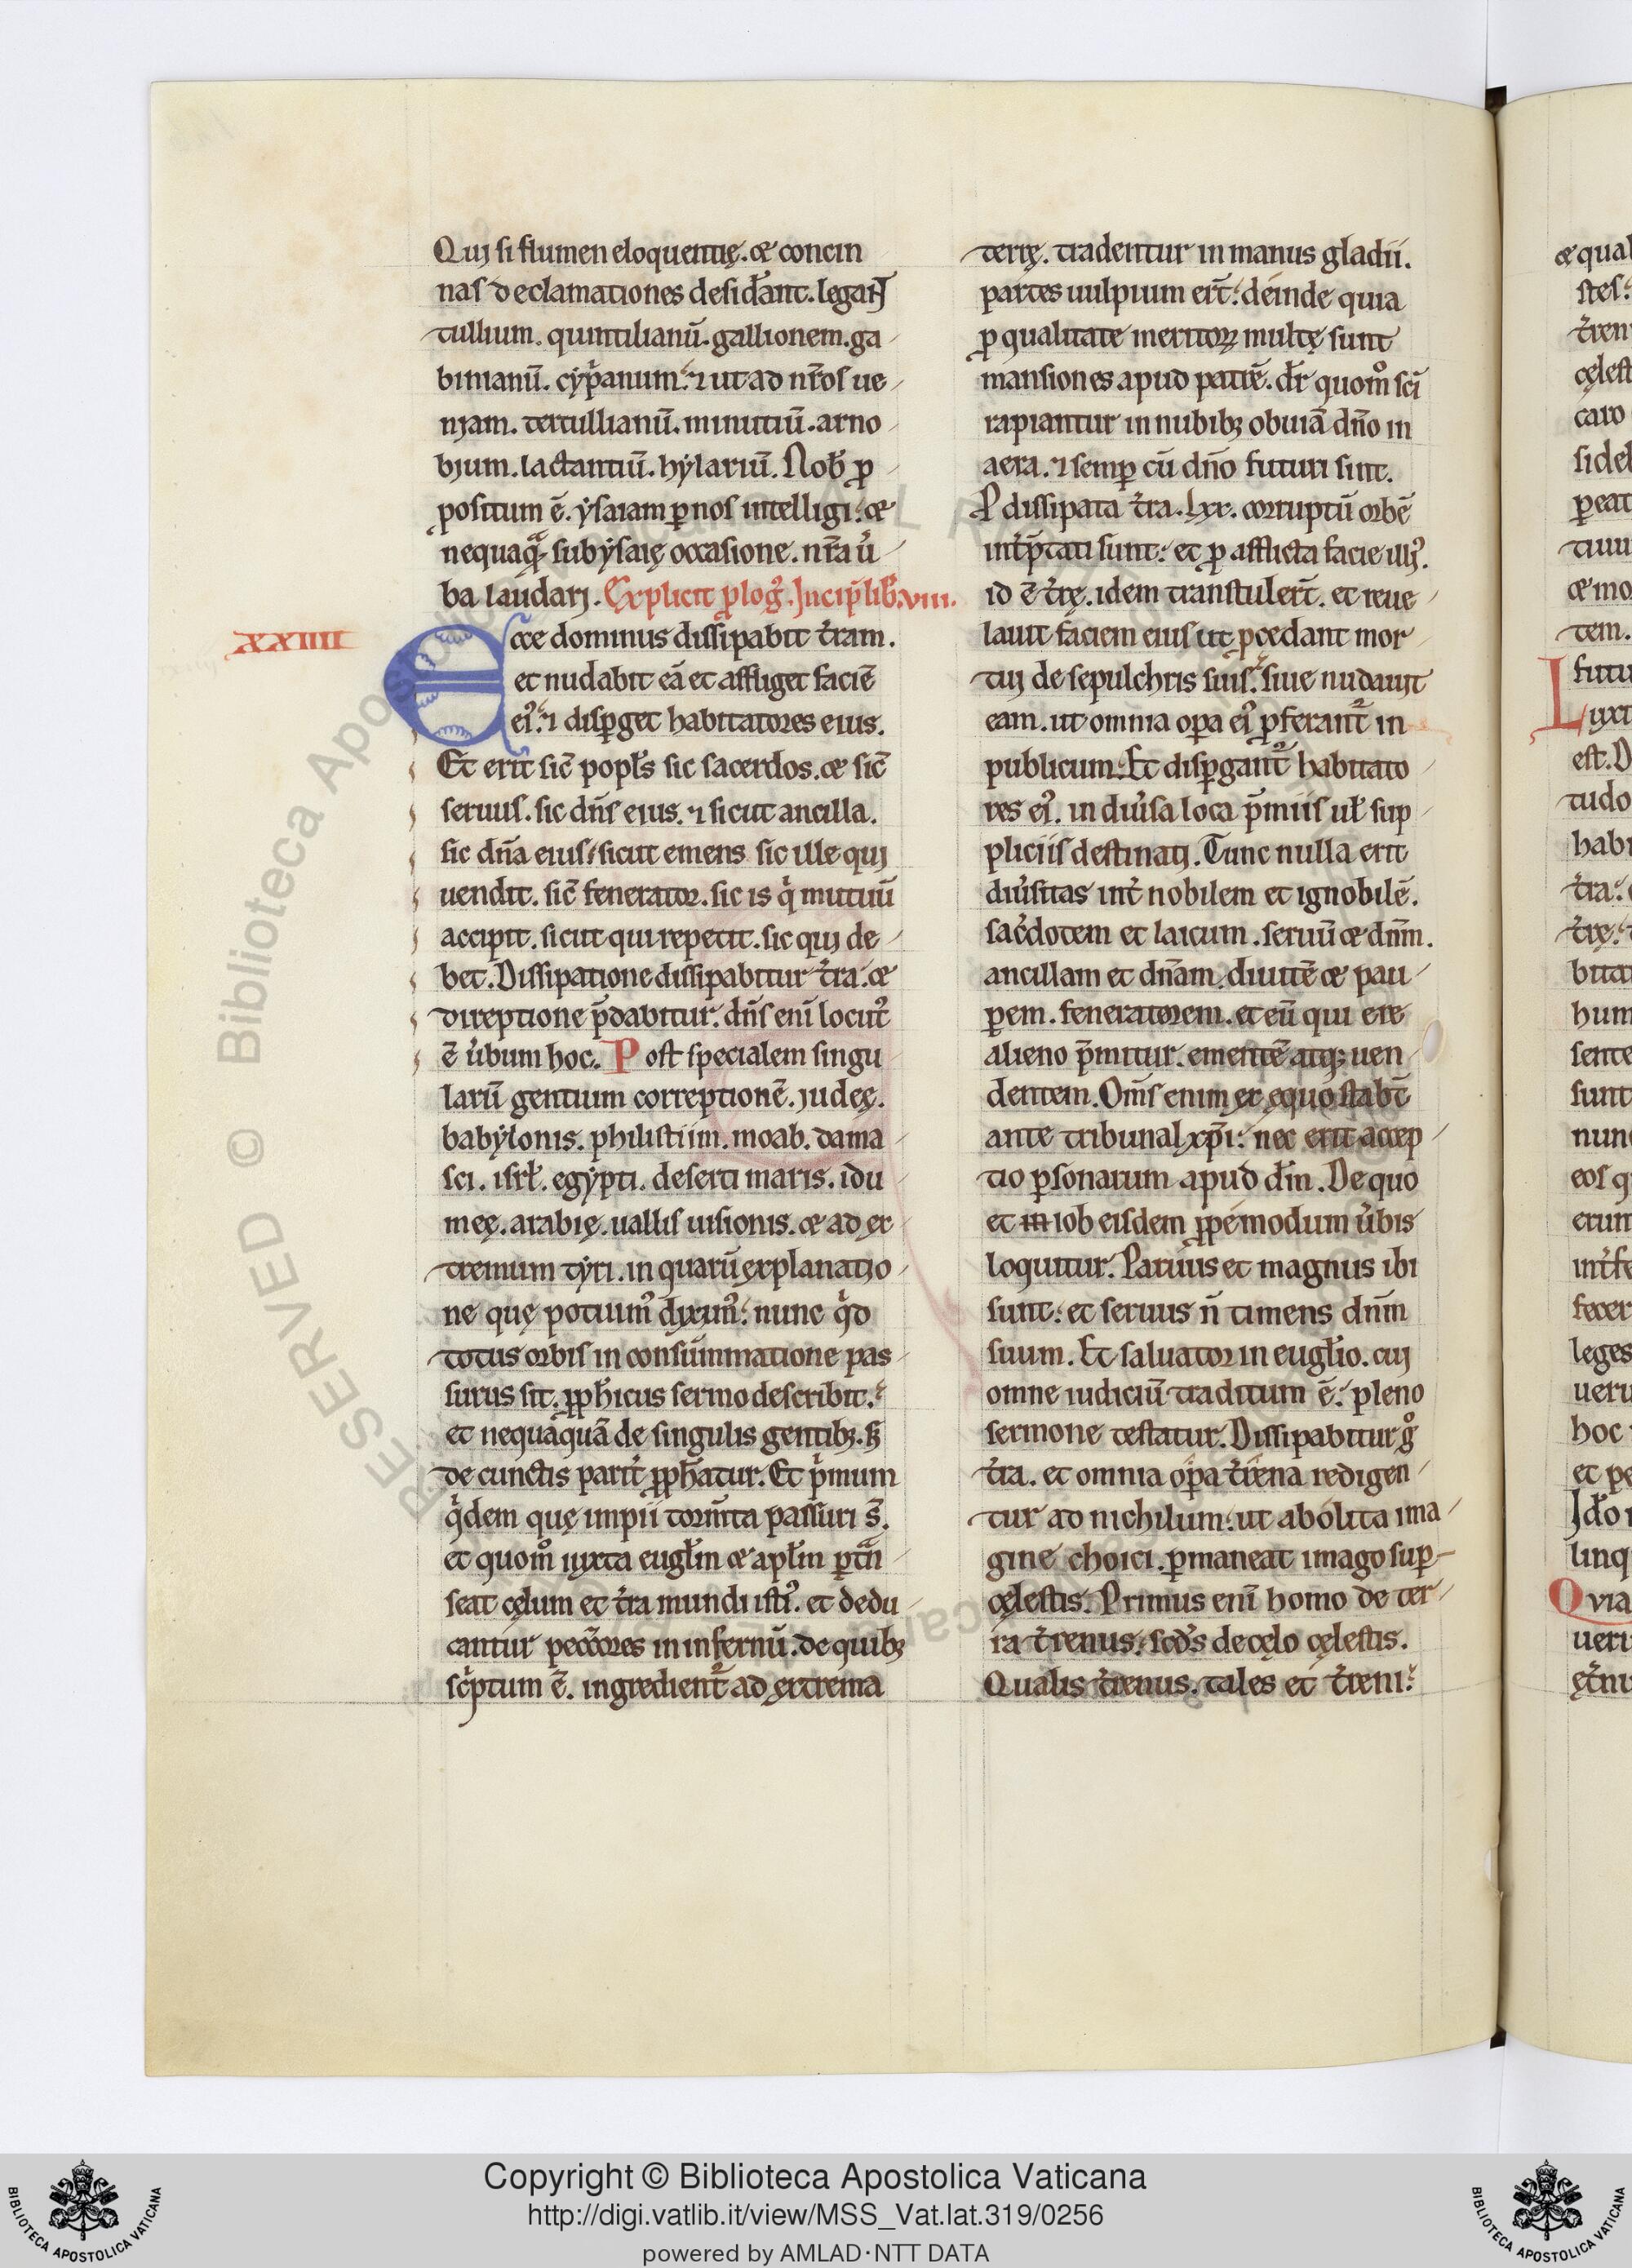 Quj si flumen eloquentię. et concin
nas declamationes desid̾ant. legant
tullium. quintilianū. gallionem. ga
binianū. cẏp̾anum. ⁊ ut ad nr̄os ue
njam. tertullianū. minutiū. arno
bjum. lactantiū. hẏlariū. Nob̾ ꝓ
positum ē. ẏsaiam ꝑ nos intelligi. et
nequaq̄. sub ẏsaię occasione. nr̄a u̾
ba laudarj. Explicit ꝓlog̾. Incip̄ lib̾. viii.
XXIIII
Ecce dominus dissipabit t̾ram.
et nudabit eā et affliget faciē
eiꝰ. ⁊ disꝑget habitatores eius.
Et erit sic̄ popl̾s sic sacerdos. et sic̄
seruus. sic dn̄s eius. ⁊ sicut ancilla.
sic dn̄a eius. sicut emens sic ille quj
uendit. sic̄ fenerator. sic is q̾ mutuū
accipit. sicut qui repetit. sic quj de
bet. Dissipatione dissipabitur t̾ra. et
direptione p̄dabitur. dn̄s eni̅ locutꝰ
ē u̾bum hoc. Post specialem singu
larū gentium correptionē. judeę.
babẏlonis. philistiim. moab. dama
sci. isrl̾. egẏpti. deserti maris. idu
meę. arabię. uallis uisionis. et ad ex
tremum tẏri. in quarū explanatio
ne quę potuimꝰ diximꝰ. nunc q̾d
totus orbis in consummatione pas
surus sit. ꝓph̄icus sermo describit.
et nequaquā de singulis gentibꝫ. sꝫ
de cunctis parit̾ ꝓph̄atur. Et p̾mum
q̾dem quę impii torm̄ta passuri s̄.
et quom̊ iuxta eugl̾m et apl̾m ꝑtn̄
seat cęlum et t̾ra mundi istiꝰ. et dedu
cantur pecc̄ores in infernū. de quibꝫ
sc̾ptum ē. ingredient̾ ad extrema
terrę. tradentur in manus gladii.
partes uulpium ert̄. deinde quia
ꝓ qualitate meritoꝝ multę sunt
mansiones apud patrē. dr̄ quom̊ sc̄i
rapiantur in nubibꝫ obuiā dn̄o in
aera. ⁊ semꝑ cū dn̄o futuri sint.
P dissipata t̾ra. lxx. corruptū orbē
int̾p̄tati sunt. et ꝓ afflicta facie illiꝰ.
id ē t̾rę. idem transtulert̄. et reue
lauit faciem eius ut ꝓcedant mor
tuj de sepulchris suis. siue nudauit
eam. ut omnia oꝑa eiꝰ ꝓferant̾ in
publicum. Et disꝑgant̾ habitato
res eiꝰ. in diu̾sa loca p̄miis ul̾ sup
pliciis destinatj. Tunc nulla erit
diu̾sitas int̾ nobilem et ignobilē.
sac̾dotem et laicum. seruū et dn̄m.
ancillam et dn̄am. diuitē et pau
ꝑem. feneratorem. et eū qui ere
alieno p̄mitur. ementē atqꝫ uen
dentem. Om̄s enim ex ęquo stabt̄
ante tribunal xp̄i. nec erit accep
tio ꝑsonarum apud dm̄. De quo
et in iob eisdem ꝓpemodum u̾bis
loquitur. Paruus et magnus ibi
sunt. et seruus n̄ timens dn̄m
suum. Et saluator in eugl̾io. cuj
omne iudiciū traditum ē. pleno
sermone testatur. Dissipabitur g̊
t̾ra. et omnia oꝑa t̾rena redigen
tur ad nichilum. ut abolita ima
gine choici. ꝑmaneat imago suꝑ
cęlestis. Primus eni̅ homo de ter
ra t̾renus. scd̾s de cęlo cęlestis.
Qualis t̾renus. tales et t̾reni.
Copyright © Biblioteca Apostolica Vaticana
http://digi.vatlib.it/view/MSS_Vat.lat.319/0256
powered by AMLAD·NTT DATA
BIBLIOTECA APOSTOLICA VATICANA
BIBLIOTECA APOSTOLICA VATICANA